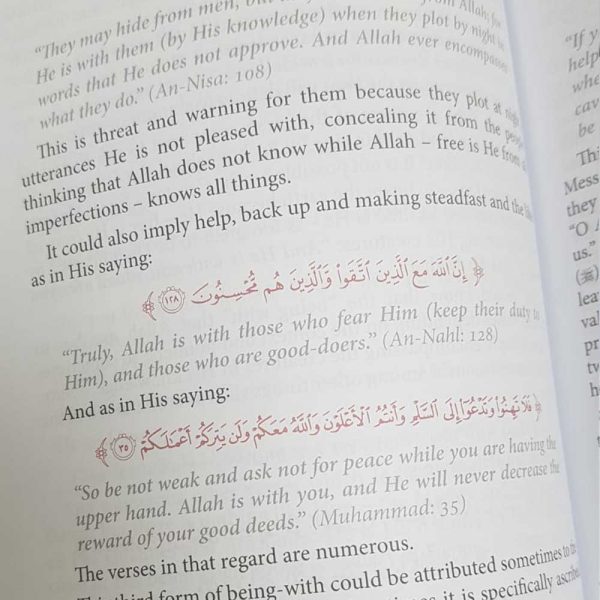 "They may hide from men, but
He is with them (by His knowledge) when they plot by night in
words that He does not approve. And Allah ever encompasses
what they do." (An-Nisa: 108)
This is threat and warning for them because they plot at night
utterances He is not pleased with, concealing it from the people
thinking that Allah does not know while Allah – free is He from all
imperfections – knows all things.
It could also imply help, back up and making steadfast and the like
as in His saying:
﴿ إِنَّ ٱللَّهَ مَعَ ٱلَّذِينَ ٱتَّقَوا۟ وَّٱلَّذِينَ هُم مُّحْسِنُونَ ١٢٨ ﴾
"Truly, Allah is with those who fear Him (keep their duty to
Him), and those who are good-doers." (An-Nahl: 128)
And as in His saying:
﴿ فَلَا تَهِنُوا۟ وَتَدْعُوٓا۟ إِلَى ٱلسَّلْمِ وَأَنتُمُ ٱلْأَعْلَوْنَ وَٱللَّهُ مَعَكُمْ وَلَن يَتِرَكُمْ أَعْمَٰلَكُمْ ٣٥ ﴾
"So be not weak and ask not for peace while you are having the
upper hand. Allah is with you, and He will never decrease the
reward of your good deeds." (Muhammad: 35)
The verses in that regard are numerous.
third form of being-with could be attributed sometimes to
it is specifically
"If y
help
whe
cav
be
Thi
Mess
they
"O A
us."
(ﷺ)
lea
val
pr
tv
h